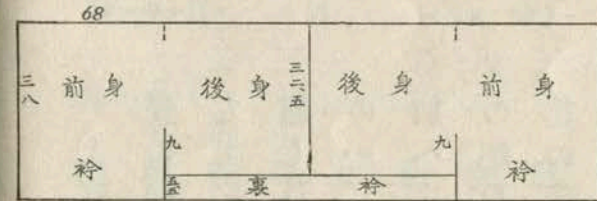 68
三八 前身 後身 三二、五 後身 前身
九 九
衿 五、五 裏衿 衿